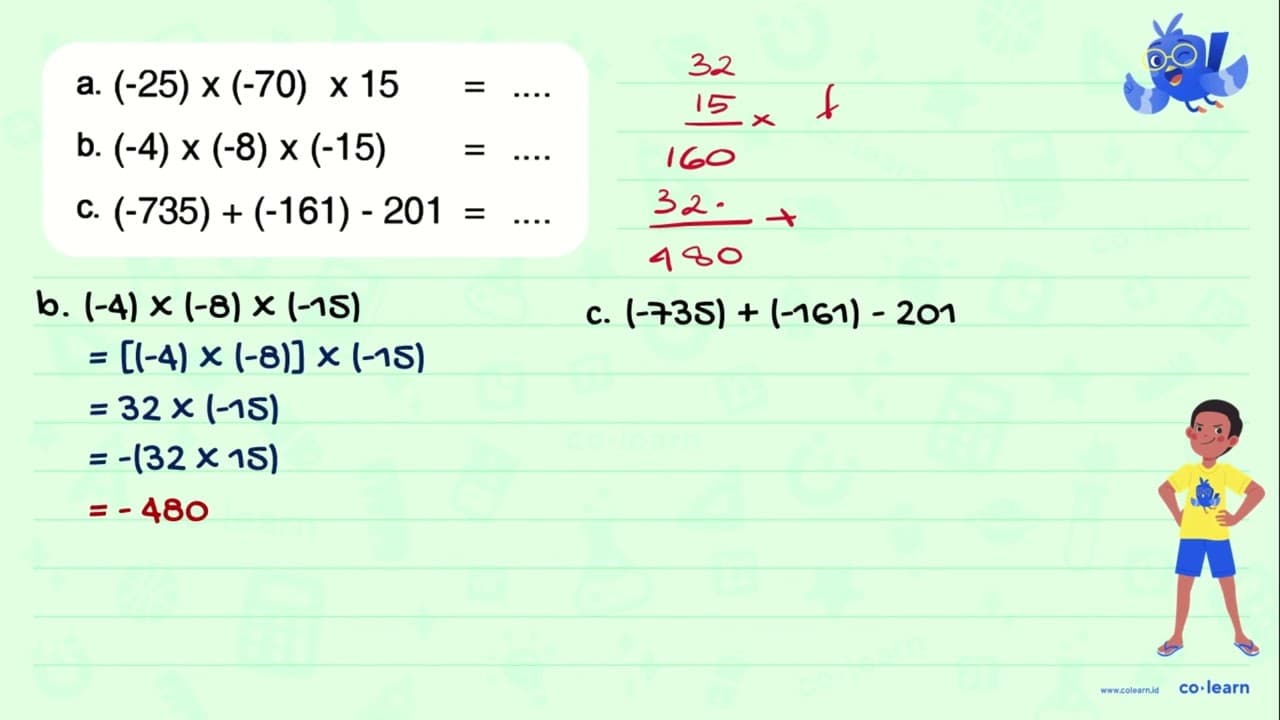 a. (-25) x (-70) x 15 = ....
b. (-4) x (-8) x (-15) = ....
c. (-735) + (-161) - 201 = ....
32
15 x
160
32. +
480
b. (-4) x (-8) x (-15)
= [(-4) x (-8)] x (-15)
= 32 x (-15)
= -(32 x 15)
= - 480
c. (-735) + (-161) - 201
www.colearn.id
co·learn